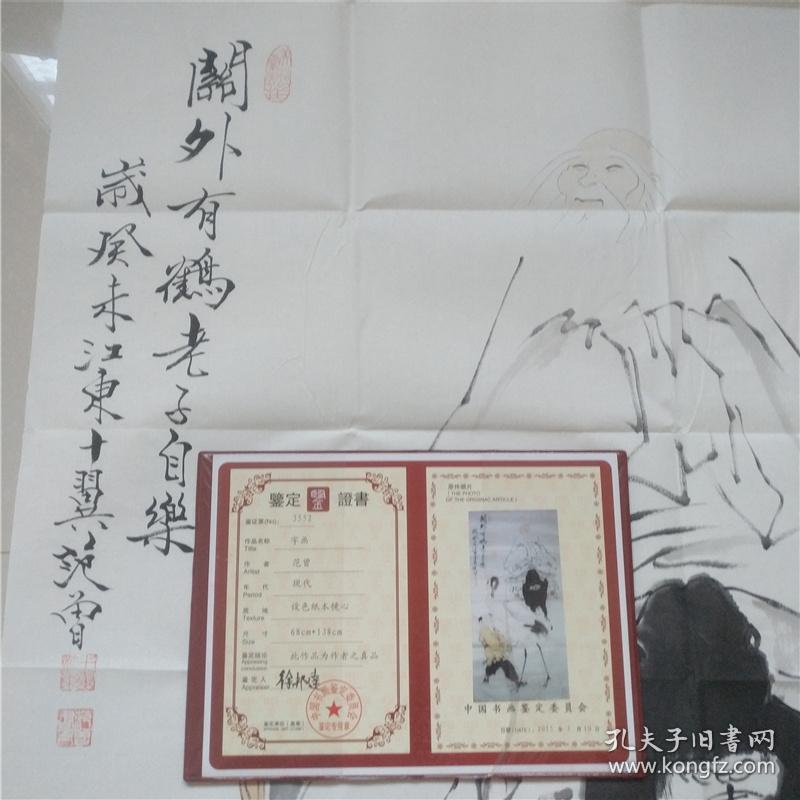 關外有鶴老子自樂
歲癸未江東十翼范曾
鑒定
鑒
證書
鉴证票(No): 3552
作品名称 字画
Title
作者 范曾
Artist
年代 现代
Period
质地 设色纸本镜心
Texture
尺寸 68cm*138cm
Size
鉴定结论 此作品为作者之真品
Appraising conclusion
鉴定人 徐邦达
Appraiser
鉴定单位(盖章)
中国书画鉴定委员会
鉴定专用章
原件照片
(THE PHOTO
OF THE ORIGINAL ARTICLE)
中国书画鉴定委员会
日期(DATE): 2011 年
孔夫子旧书网
www.kongfz.com